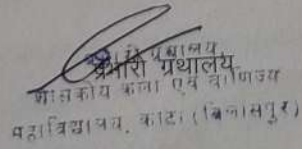 प्रभारी ग्रंथालय
शासकीय कला एवं वाणिज्य
महाविद्यालय, कोटा (बिलासपुर)